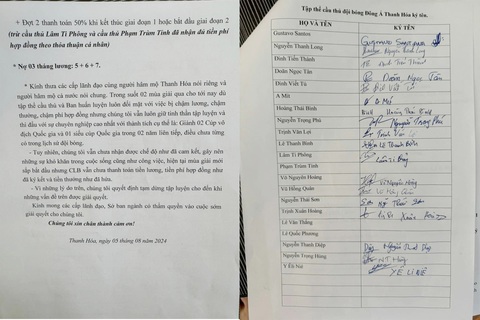 + Đợt 2 thanh toán 50% khi kết thúc giai đoạn 1 hoặc bắt đầu giai đoạn 2
(trừ cầu thủ Lâm Ti Phông và cầu thủ Phạm Trùm Tỉnh đã nhận đủ tiền phí
hợp đồng theo thỏa thuận cá nhân)
* Nợ 03 tháng lương: 5 + 6 + 7.
* Kính thưa các cấp lãnh đạo cùng người hâm mộ Thanh Hóa nói riêng và
người hâm mộ cả nước nói chung. Trong suốt 02 mùa giải qua cho tới nay dù
tập thể cầu thủ và Ban huấn luyện luôn đối mặt với việc bị chậm lương, chậm
thưởng, chậm phí hợp đồng nhưng chúng tôi vẫn luôn giữ tinh thần tập luyện và
thi đấu với sự chuyên nghiệp cao nhất với thành tích cụ thể là: Giành 02 Cúp vô
địch Quốc gia và 01 siêu cúp Quốc gia trong 02 năm liên tiếp, điều chưa từng
có trong lịch sử đội bóng.
- Tuy nhiên, chúng tôi vẫn chưa nhận được chế độ như đã cam kết, gây nên
những sự khó khăn trong cuộc sống cũng như công việc, hiện tại mùa giải mới
sắp bắt đầu nhưng CLB vẫn chưa thanh toán tiền lương, tiền phí hợp đồng như
đã ký kết và tiền thưởng như đã hứa.
- Vì những lý do trên, chúng tôi quyết định tạm dừng tập luyện cho đến khi
những vấn đề trên được giải quyết.
Kính mong các cấp lãnh đạo, Sở ban ngành có thẩm quyền vào cuộc sớm
giải quyết cho chúng tôi.
Chúng tôi xin chân thành cảm ơn!
Thanh Hóa, ngày 03 tháng 08 năm 2024
Tập thể cầu thủ đội bóng Đông Á Thanh Hóa ký tên.
HỌ VÀ TÊN KÝ TÊN
Gustavo Santos
Nguyễn Thanh Long
Đinh Tiến Thành
Doãn Ngọc Tân Doãn Ngọc Tân
Đinh Viết Tú
A Mít
Hoàng Thái Bình Hoàng Thái Bình
Nguyễn Trọng Phú Nguyễn Trọng Phú
Trịnh Văn Lợi Trịnh Văn Lợi
Lê Thanh Bình Lê Thanh Bình
Lâm Ti Phông
Phạm Trùm Tỉnh
Võ Nguyên Hoàng Võ Nguyên Hoàng
Vũ Hồng Quân
Nguyễn Thái Sơn
Trịnh Xuân Hoàng
Lê Văn Thắng
Lê Quốc Phương
Nguyễn Thanh Diệp
Nguyễn Trung Hùng
Y Êli Niê YÊLINIÊ